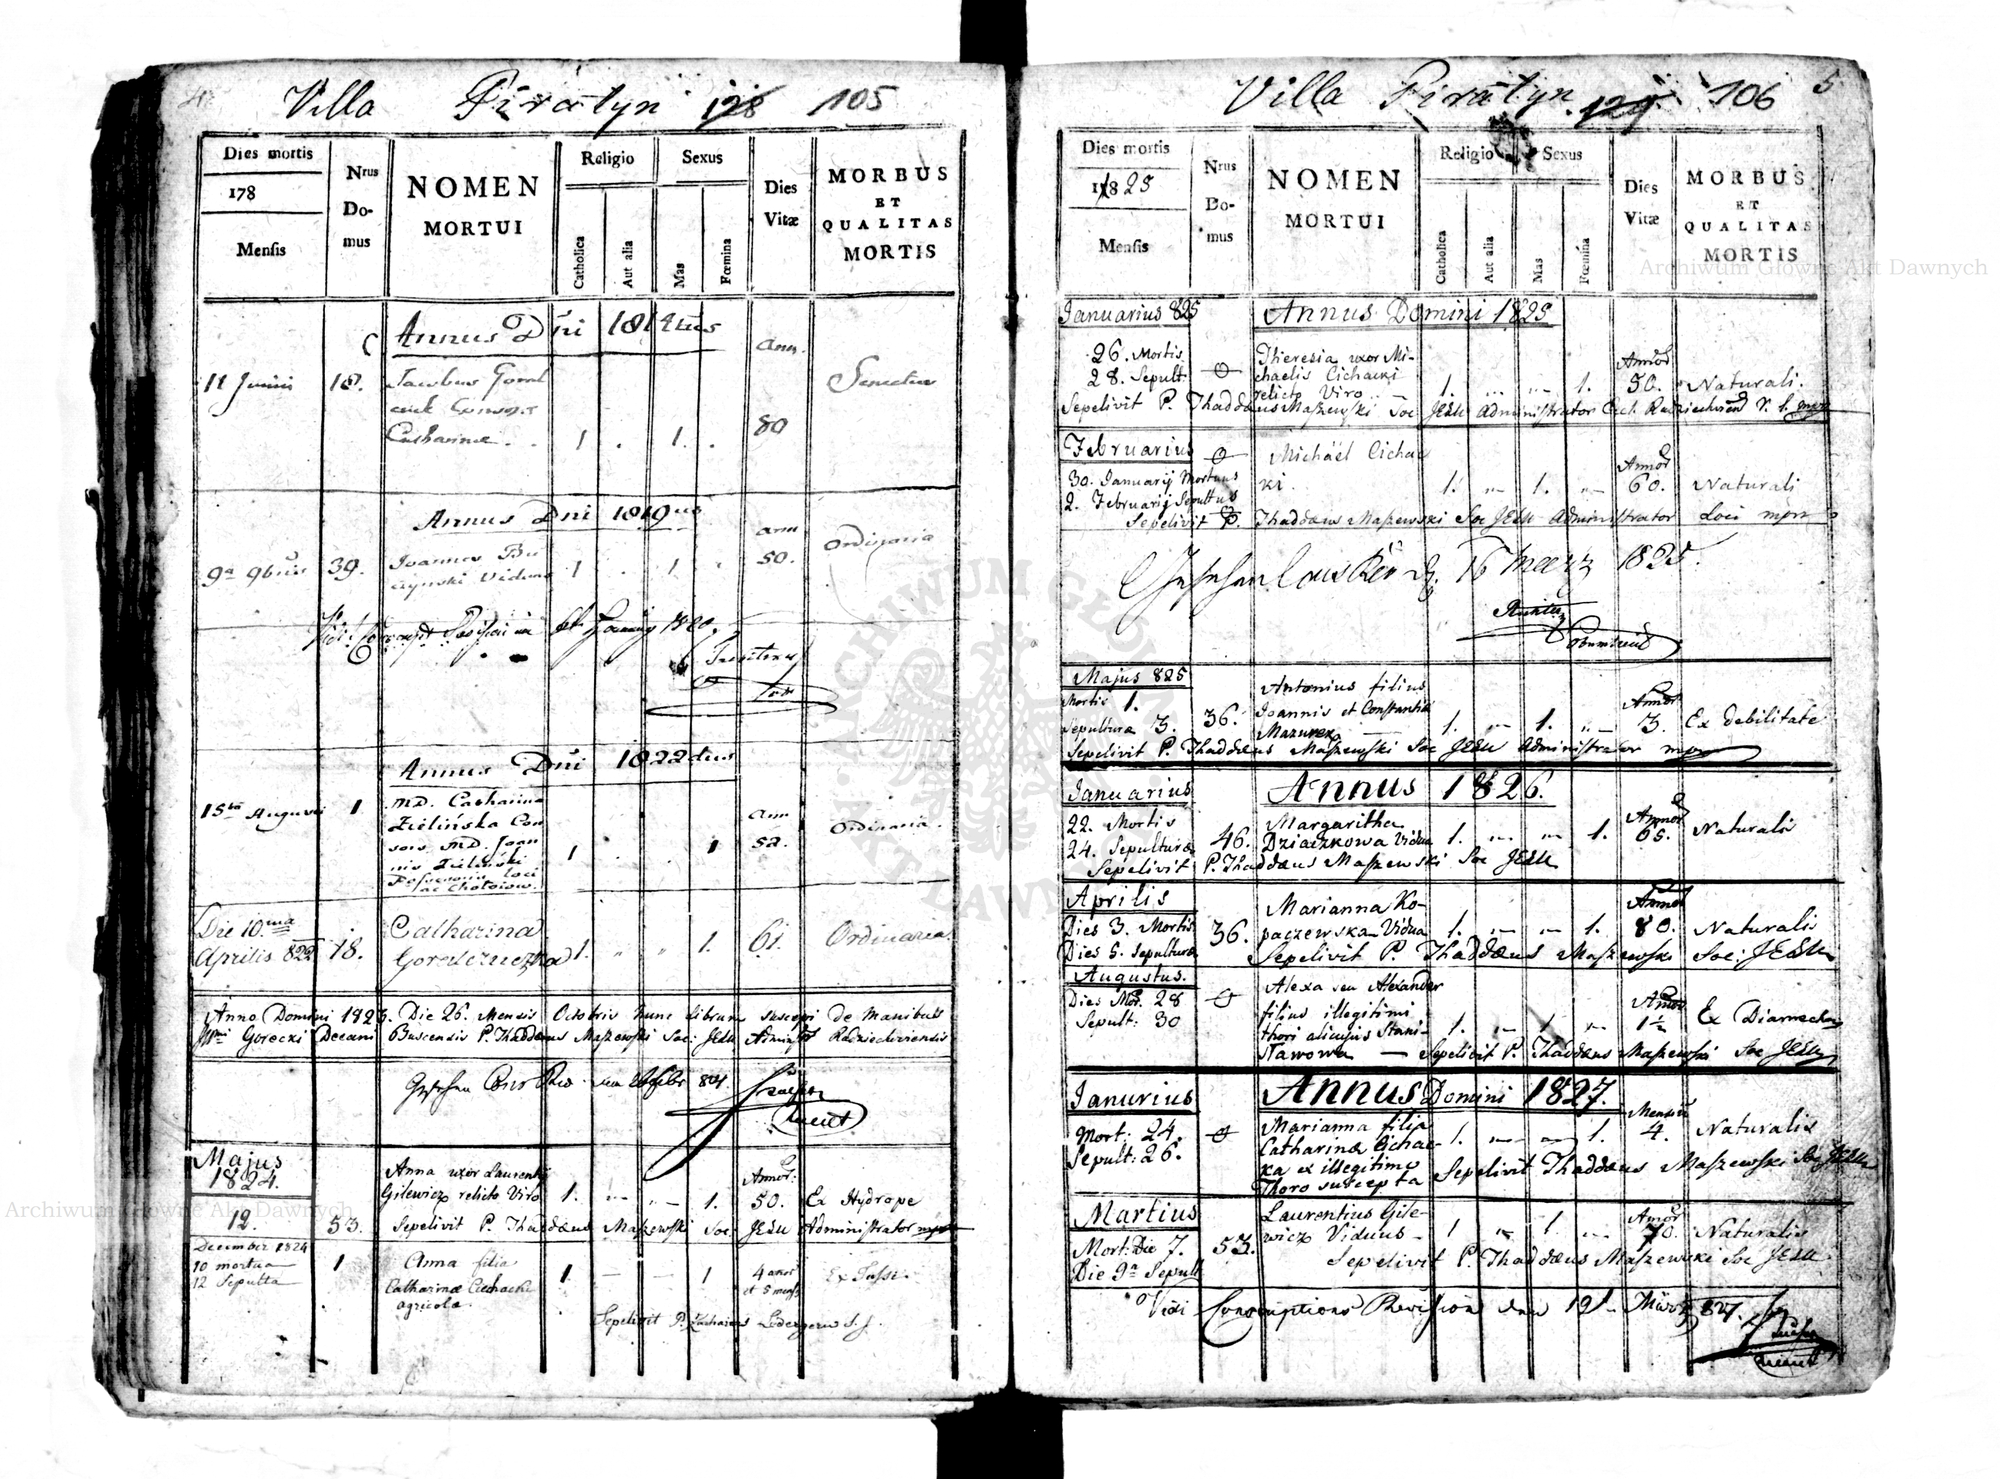 4
Villa Piratyn 128 105
Dies mortis
178
Mensis
Nrus Domus
NOMEN
MORTUI
Religio
Catholica
Aut alia
Sexus
Mas
Fœmina
Dies
Vitæ
MORBUS
ET
QUALITAS
MORTIS
Annus Dni 1814tus
ann
11 Junii 18. Jacobus Senectus
Catharinæ . . 1 . 1. . 80
Annus Dni 1819nus
ann
9a 9bris 39. Joannes Bu 1 . 1 . 50. Ordinaria
czynski Viduus
Annus Dni 1822dus
15ta Augusti 1 MD. Catharina ann
Zielińska Con 52. Ordinaria.
sors MD. Joan 1 1
nis Zieliński
Possessoris loci
Die 10ma Catharina
Aprilis 823 18. 1. " " 1. 61. Ordinarea
Anno Domini 1823. Die 26. Mensis Octobris hunc librum suscepi de Manibus
Gorecki Decani Buscensis P. Thaddæus Maszewski Soc: JESU Administr Radziechoviensis
Majus
1824.
Anna uxor Laurentij Annor:
Gilewicz relicto Viro 1. 1. 50. Ex Hydrope
12. 53. Sepelivit P. Thaddæus Maszewski Soc: JESU Administrator mpr
December 1824
10 mortua 1 Anna filia 4 anor
12 Sepulta Catharinæ Cichacki 1 1 et 5 mens Ex Tussi
agricolæ
Sepelivit P. Zacharias S. J.
Villa Piratyn 129 106 5
Dies mortis
1825
Mensis
Nrus Domus
NOMEN
MORTUI
Religio
Catholica
Aut alia
Sexus
Mas
Fœmina
Dies
Vitæ
MORBUS
ET
QUALITAS
MORTIS
Januarius 825 Annus Domini 1825
26. Mortis Theresia uxor Mi- Annor
28. Sepult. chaelis Cichacki 1. 1. 50. Naturali.
relicto Viro
Sepelivit P. Thaddæus Maszewski Soc JESU Administrator
Februarius Michaël Cichac Annor
30. Januarij Mortuus ki. 1. 1. 60. Naturali
2. Februarij Sepultus
Sepelivit P. Thaddæus Maszewski Soc JESU Administrator Loci mpr
16 Maerz 1825.
Majus 825 Antonius filius Annor
Mortis 1. Joannis et Constantiæ
Sepulturæ 3. 36. Mazurek 1. 1. 3. Ex debilitate
Sepelivit P. Thaddæus Maszewski Soc JESU Administrator mpr
Januarius Annus 1826.
22. Mortis Margaritha Annor
24. Sepulturæ 46. Dziaczkowa Vidua 1. 1. 65. Naturalis
Sepelivit P. Thaddæus Maszewski Soc JESU
Aprilis Marianna Ko- Annor
Dies 3. Mortis 36. paczewska Vidua 1. 1. 80. Naturalis
Dies 5. Sepulturæ Sepelivit P. Thaddæus Maszewski Soc: JESU
Augustus. Alexa seu Alexander
Dies Mor. 28 filius illegitimi Annor
Sepult: 30 thori alicujus Stani- 1. 1 1½ Ex Diarrhea
sławowa Sepelivit P. Thaddæus Maszewski Soc JESU
Janurius Annus Domini 1827.
Mort: 24. Marianna filia Mensium
Sepult: 26. Catharinæ Cichac- 1. 1. 4. Naturalis
ka ex illegitimo Sepelivit Thaddæus Maszewski Soc JESU
Thoro suscepta
Martius Laurentius Gile- Annor
Mort: Die 7. 53. wicz Viduus 1 1. 70. Naturalis
Die 9a Sepult Sepelivit P. Thaddæus Maszewski Soc JESU
Vidi Conscriptions Revision den 19t März 827.
Archiwum Główne Akt Dawnych
Archiwum Główne Akt Dawnych
ARCHIWUM GŁÓWNE AKT DAWNYCH